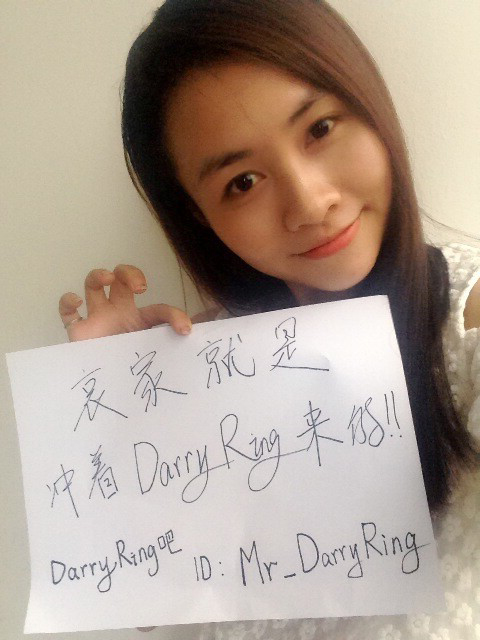 哀家就是
冲着Darry Ring来的!!
Darry Ring吧 ID: Mr_DarryRing